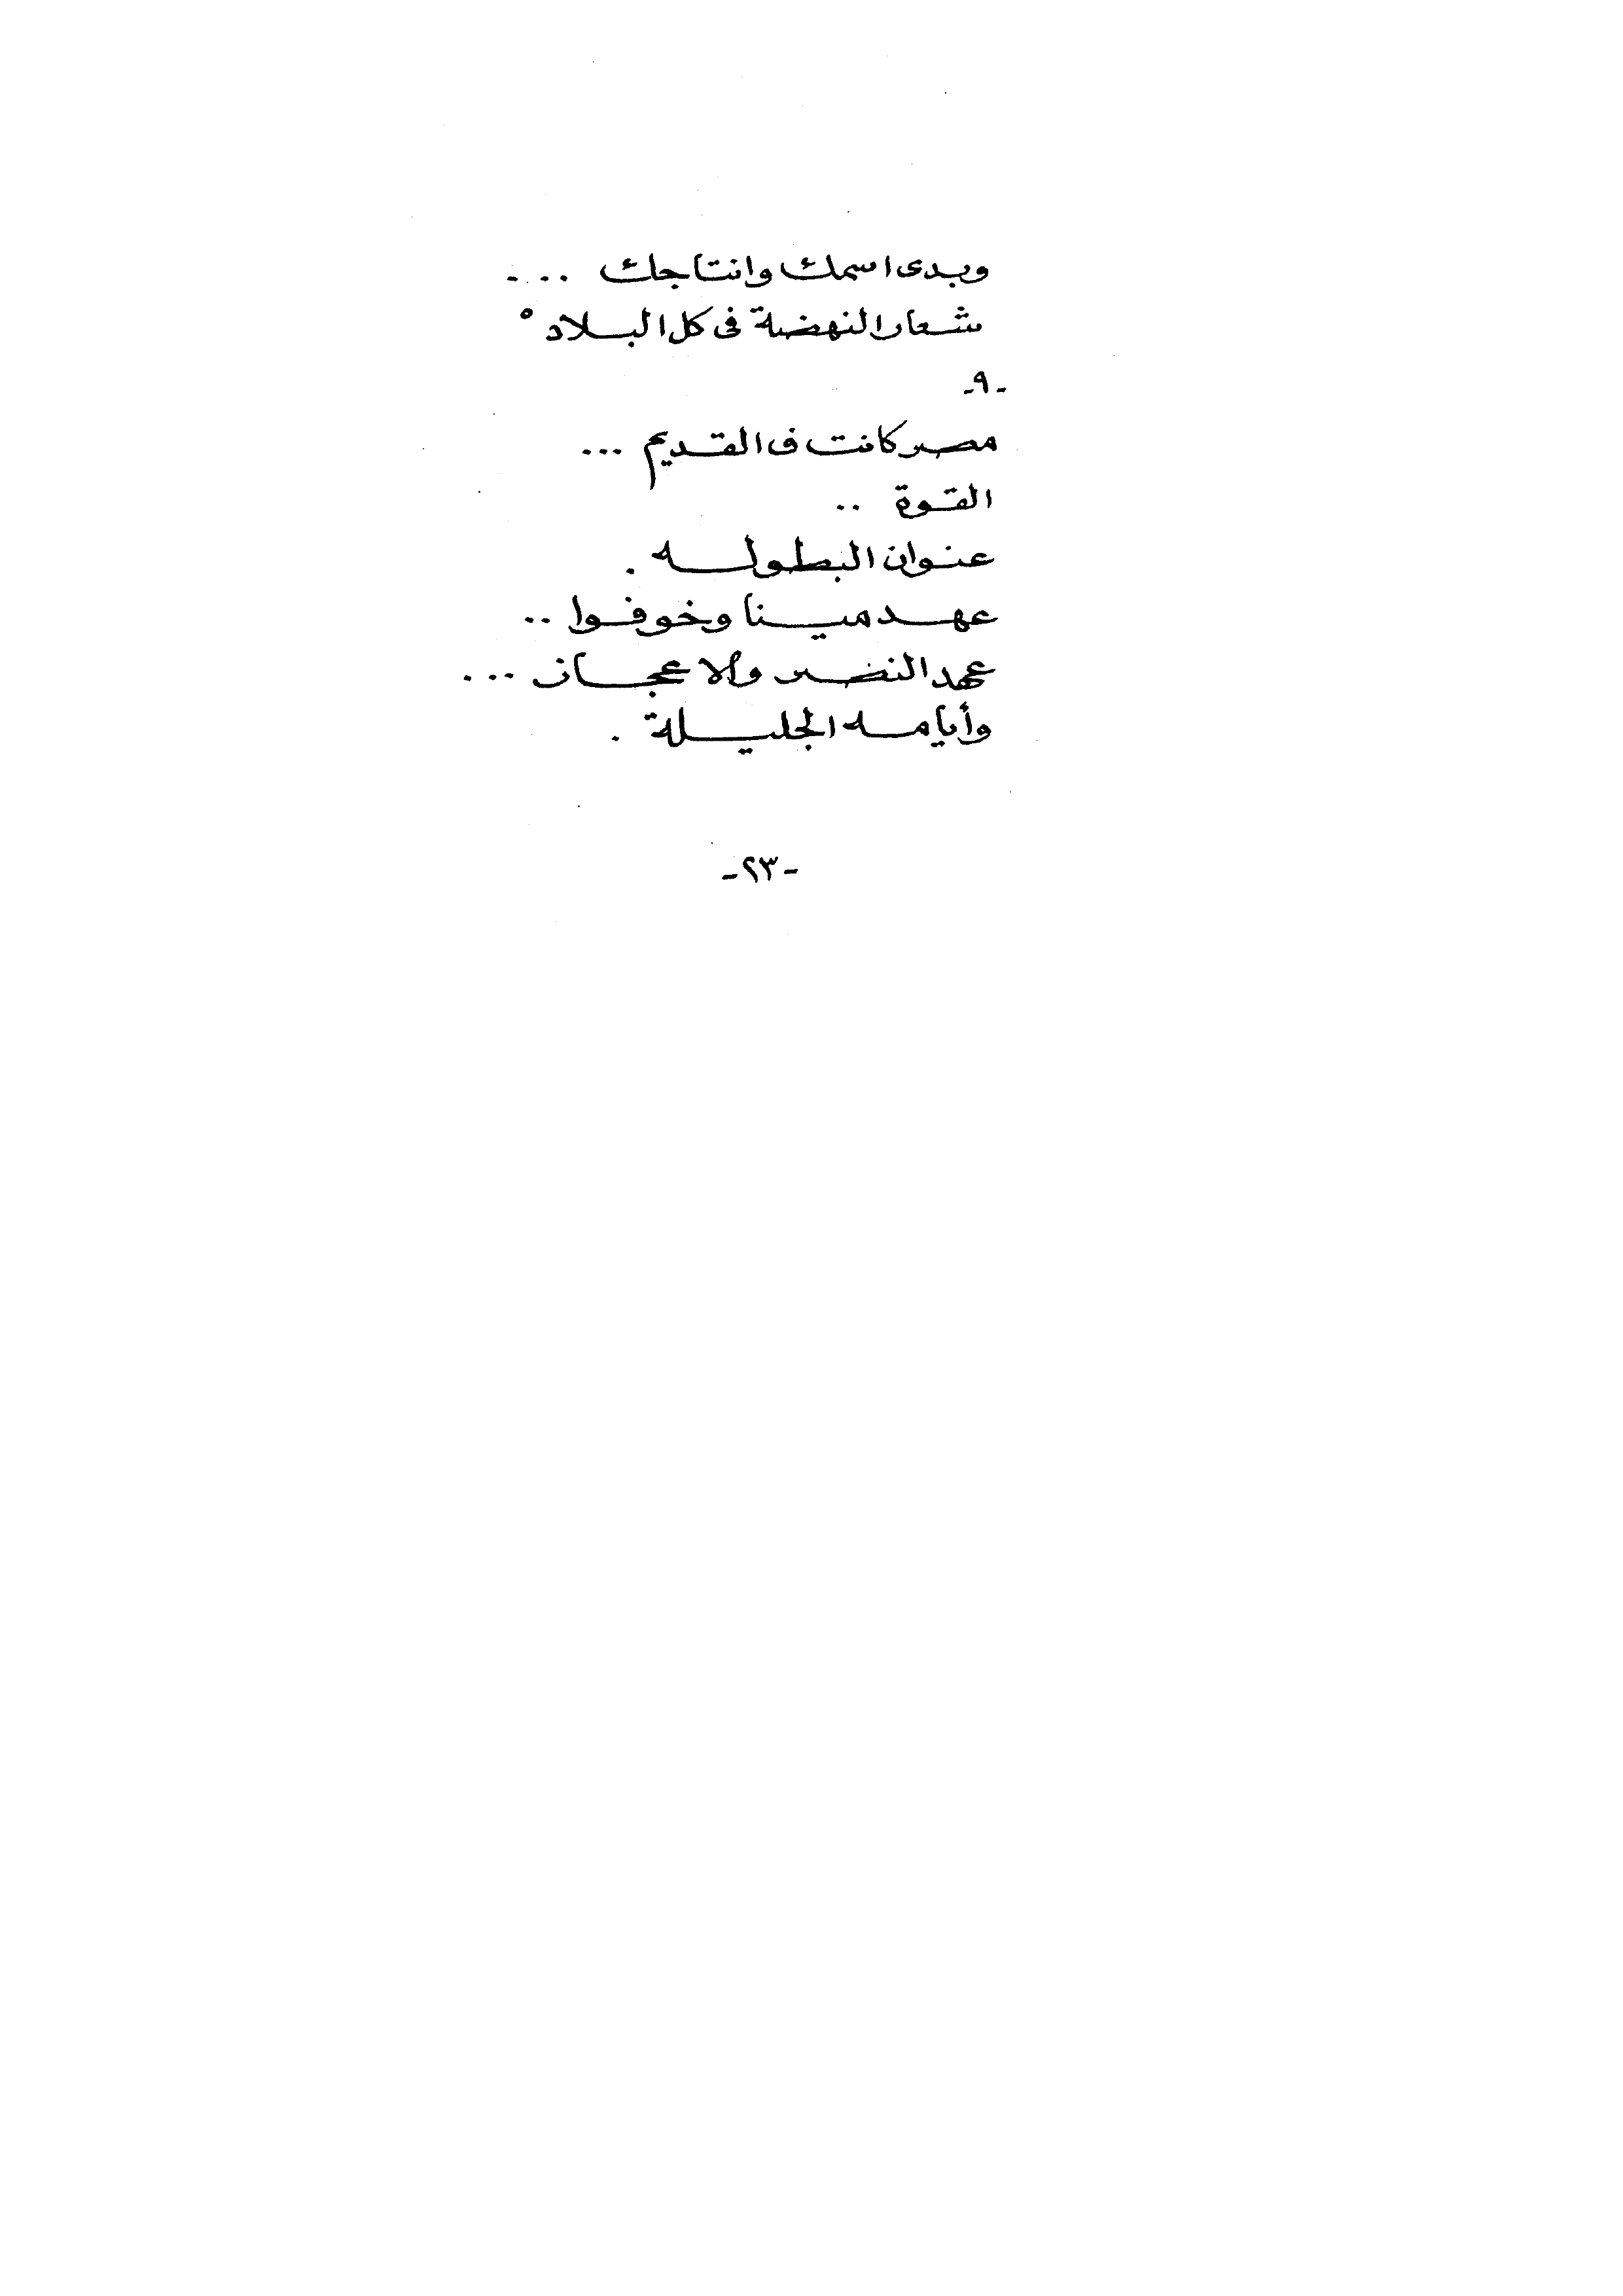 ويدى اسمك وانتاجك ....
شعار النهضة فى كل البلاد°
-٩-
مصر كانت ف القديم ...
القوة ..
عنوان البطوله .
عهد مينا وخوفوا ..
عهد النصر والاعجاز ...
وأيامه الجليلة .
-٢٣-